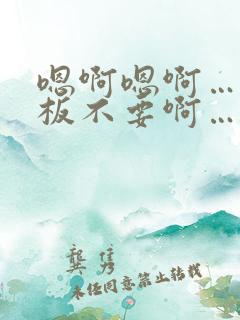 嗯啊嗯啊…
板不要啊…
龚隽
未经同意禁止转载